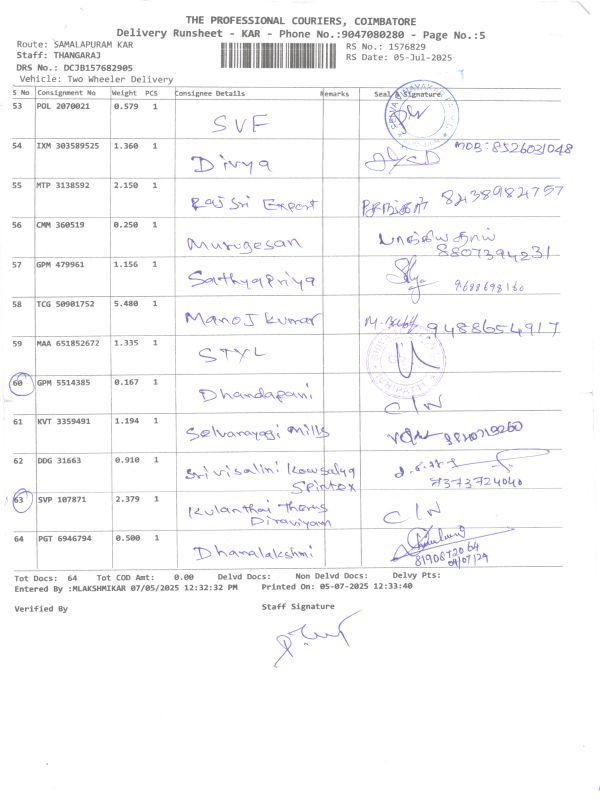 THE PROFESSIONAL COURIERS, COIMBATORE
Delivery Runsheet - KAR - Phone No.:9047080280 - Page No.:5
Route: SAMALAPURAM KAR
RS No.: 1576829
Staff: THANGARAJ
RS Date: 05-Jul-2025
DRS No.: DCJB157682905
Vehicle: Two Wheeler Delivery
S No Consignment No Weight PCS Consignee Details Remarks Seal & Signature
53 POL 2070021 0.579 1 SVF
54 IXM 303589525 1.360 1 Divya MOB: 8526031048
55 MTP 3138592 2.150 1 Raj Sri Export 8243898 4757
56 CMM 360519 0.250 1 Murugesan 8807394231
57 GPM 479961 1.156 1 Sathyapriya 9688698160
58 TCG 50901752 5.480 1 Manoj Kumar M. 9488654917
59 MAA 651852672 1.335 1 STYL
60 GPM 5514385 0.167 1 Dhandapani C/N
61 KVT 3359491 1.194 1 Selvarayagi Mills
62 DDG 31663 0.910 1 Sri visalini Kowsalya
Spintex 7373724040
63 SVP 107871 2.379 1 Kulanthai Therus
Diraviyam C/N
64 PGT 6946794 0.500 1 Dhanalakshmi
Tot Docs: 64 Tot COD Amt: 0.00 Delvd Docs: Non Delvd Docs: Delvy Pts:
Entered By :MLAKSHMIKAR 07/05/2025 12:32:32 PM Printed On: 05-07-2025 12:33:40
Verified By Staff Signature